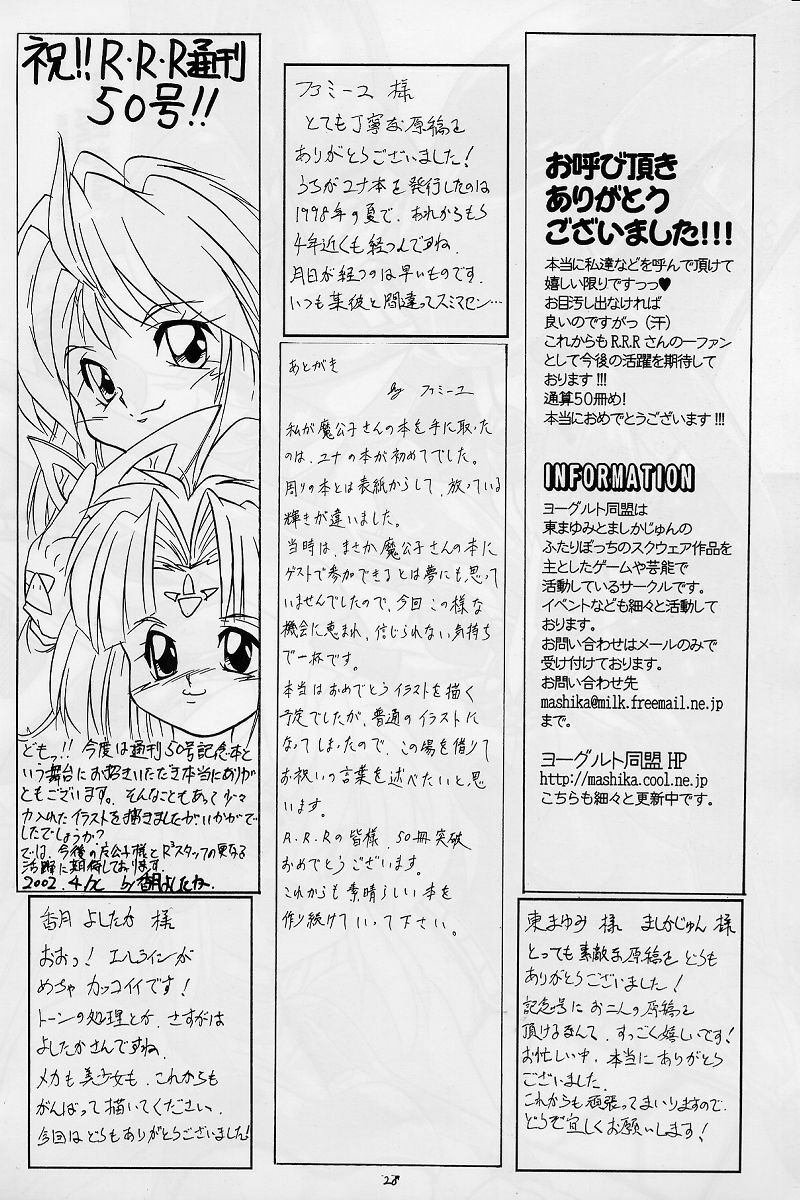 祝!! R・R・R通刊
50号!!
どもっ!! 今度は通刊50号記念本と
いう舞台にお招きいただき本当にありが
ともございます。そんなこともあって少々
力入れたイラストを描きましたがいかがで
したでしょうか?
では、今後の左公子様とR³スタッフの更なる
活躍に期待しております。
2002. 4/ by 香月よしたか.
香月 よしたか 様
おおっ! エルラインが
めちゃ カッコイイです!
トーンの処理とか、さすがは
よしたかさんですね。
メカも美少女も、これからも
がんばって描いてください。
今回はどうもありがとうございました!
ファミーユ 様
とても丁寧な原稿を
ありがとうございました!
うちがユナ本を発行したのは
1998年の夏で、あれからもう
4年近くも経つんですね。
月日が経つのは早いものです。
いつも某彼と間違ってスミマセン…
あとがき
By ファミーユ
私が魔公子さんの本を手に取った
のは、ユナの本が初めてでした。
周りの本とは表紙からして、放っている
輝きが違いました。
当時は、まさか魔公子さんの本に
ゲストで参加できるとは夢にも思って
いませんでしたので、今回この様な
機会に恵まれ、信じられない気持ち
で一杯です。
本当はおめでとうイラストを描く
予定でしたが、普通のイラストに
なってしまったので、この場を借りて
お祝いの言葉を述べたいと思
います。
R.R.Rの皆様、50冊突破
おめでとうございます。
これからも素晴らしい本を
作り続けていって下さい。
お呼び頂き
ありがとう
ございました!!!
本当に私達などを呼んで頂けて
嬉しい限りですっっ♥
お目汚し出なければ
良いのですがっ（汗）
これからもR.R.Rさんの一ファン
として今後の活躍を期待して
おります!!!
通算50冊め!
本当におめでとうございます!!!
INFORMATION
ヨーグルト同盟は
東まゆみとましかじゅんの
ふたりぼっちのスクウェア作品を
主としたゲームや芸能で
活動しているサークルです。
イベントなども細々と活動して
おります。
お問い合わせはメールのみで
受け付けております。
お問い合わせ先
mashika@milk.freemail.ne.jp
まで。
ヨーグルト同盟 HP
http://mashika.cool.ne.jp
こちらも細々と更新中です。
東まゆみ 様 ましかじゅん 様
とっても素敵な原稿をどうも
ありがとうございました!
記念号にお二人の原稿を
頂けるなんて、すっごく嬉しいです!
お忙しい中、本当にありがとう
ございました。
これからも頑張ってまいりますので、
どうぞ宜しくお願いします!
28